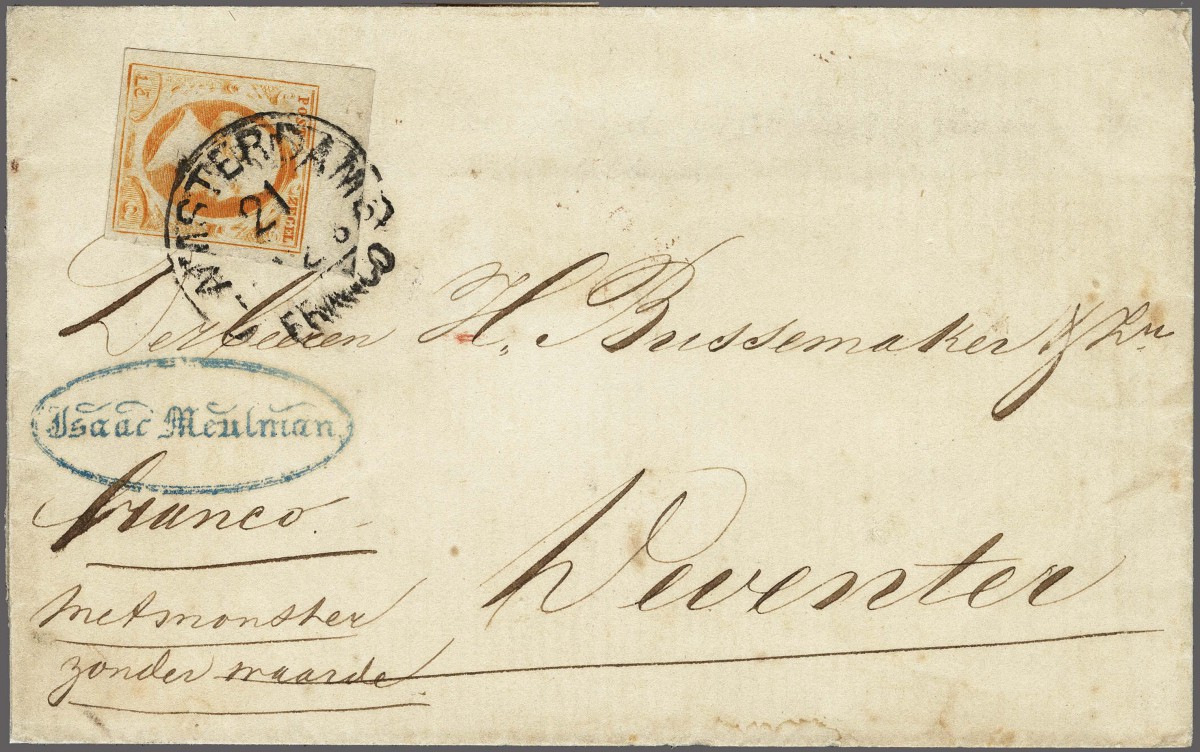 15 C
POSTZEGEL
AMSTERDAM
21
FRANCO
Derheeren H. Bussemaker & Zn
Isaac Meulman
franco
Deventer
met monster
zonder waarde